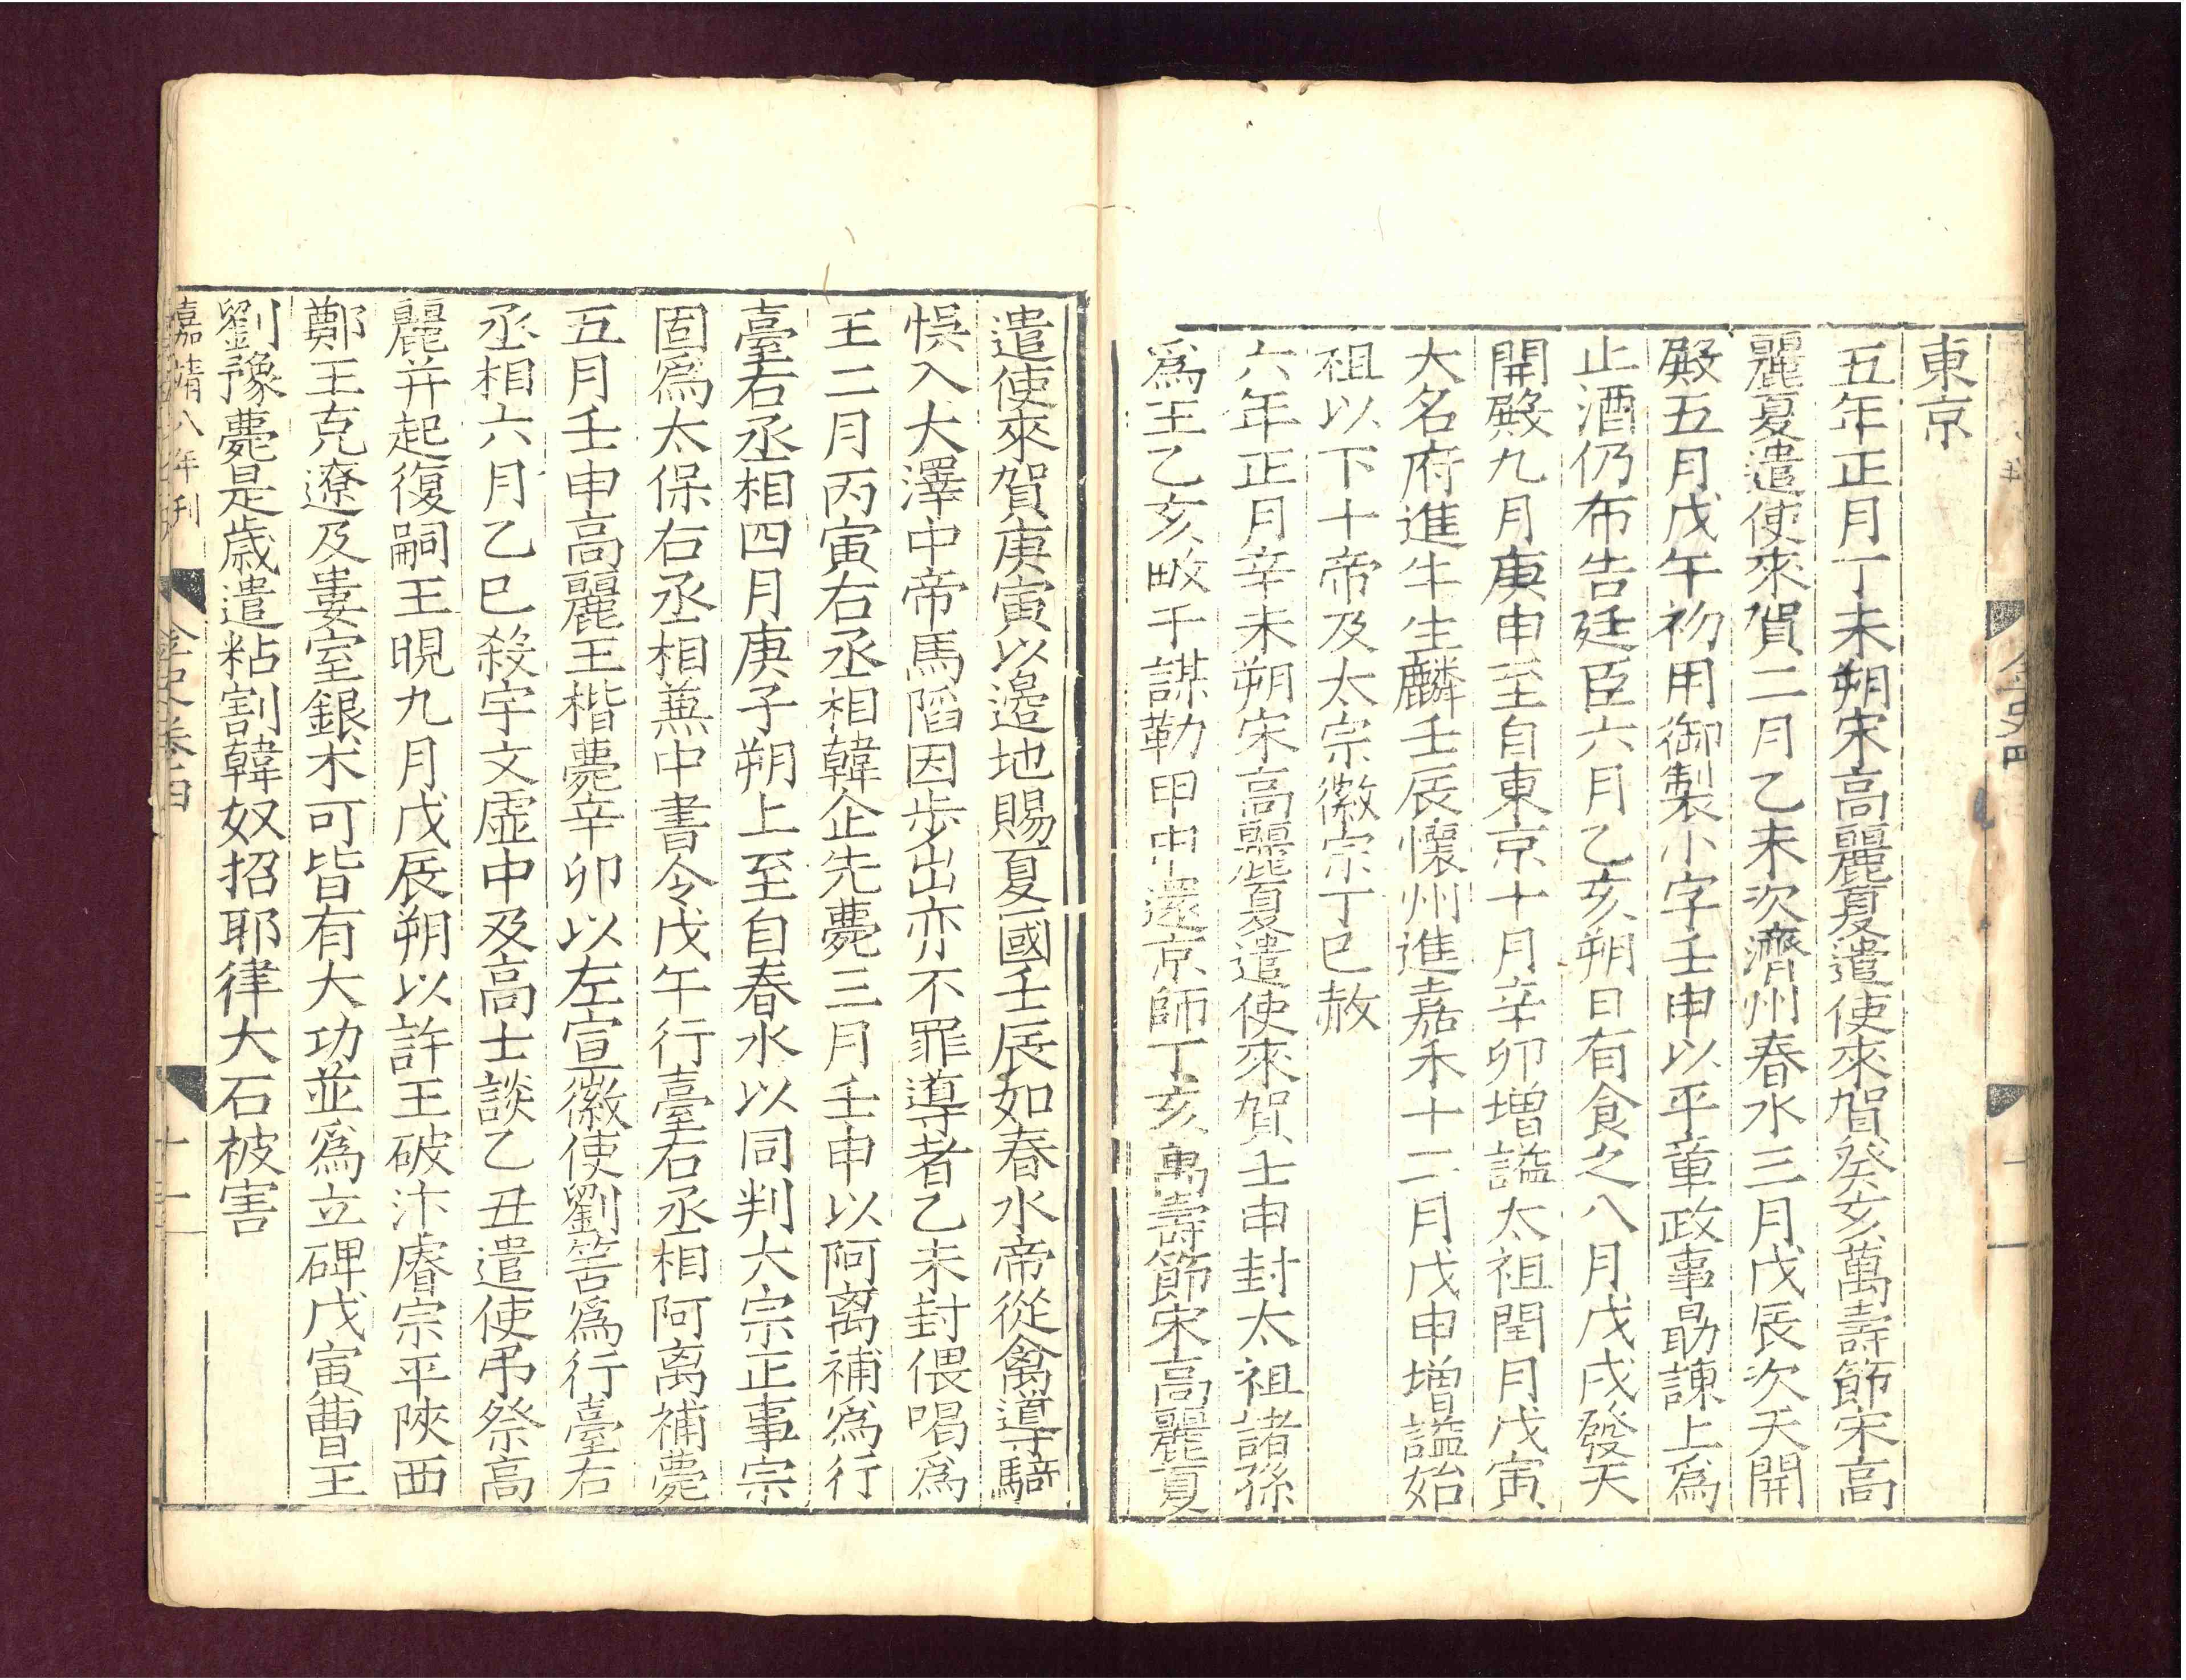 東京
五年正月丁未朔宋高麗夏遣使來賀癸亥萬壽節宋高
麗夏遣使來賀二月乙未次濟州春水三月戊辰次天開
殿五月戊午初用御製小字壬申以平章政事勗諫上爲
止酒仍布告廷臣六月乙亥朔日有食之八月戊戌發天
開殿九月庚申至自東京十月辛卯增諡太祖閏月戊寅
大名府進牛生麟壬辰懷州進嘉禾十二月戊申增諡始
祖以下十帝及太宗徽宗丁巳赦
六年正月辛未朔宋高麗夏遣使來賀壬申封太祖諸孫
爲王乙亥畋于謀勒甲申還京師丁亥萬壽節宋高麗夏
遣使來賀庚寅以邉地賜夏國壬辰如春水帝從禽導騎
悞入大澤中帝馬䧟因步出亦不罪導者乙未封偎喝爲
王二月丙寅右丞相韓企先薨三月壬申以阿离補爲行
臺右丞相四月庚子朔上至自春水以同判大宗正事宗
固爲太保右丞相兼中書令戊午行臺右丞相阿离補薨
五月壬申高麗王楷薨辛卯以左宣徽使劉筈爲行臺右
丞相六月乙巳殺宇文虛中及高士談乙丑遣使弔祭高
麗并起復嗣王晛九月戊辰朔以許王破汴睿宗平陜西
鄭王克遼及婁室銀术可皆有大功並爲立碑戊寅曹王
劉豫薨是歲遣粘割韓奴招耶律大石被害
嘉靖八年刊
金史卷四
十一